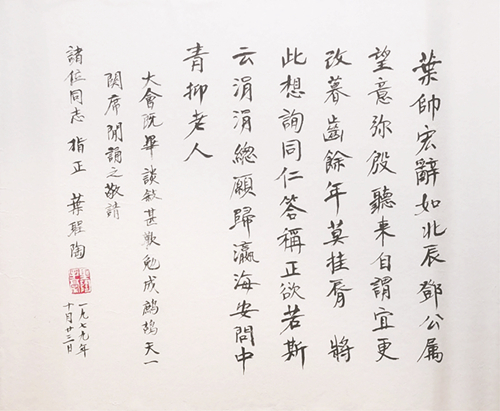 葉帥宏辭如北辰鄧公属
望意弥殷聽来自謂宜更
改暮齒餘年莫挂脣 將
此想詢同仁答稱正欲若斯
云涓涓總願歸瀛海安問中
青抑老人
大會既畢談敘甚歡勉成鷓鴣天一
闋席間誦之敬請
諸位同志指正 葉聖陶
一九七九年
十月廿三日